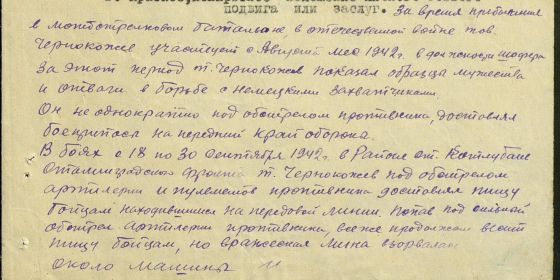 подвига или заслуг. За время пребывания
в мотострелковом батальоне, в отечественной войне тов.
Чернокожев участвует с Август мес 1942г. в должности шофера
За этот период т. Чернокожев показал образцы мужества
и отваги в борьбе с немецкими захватчиками.
Он не однократно под обстрелом противника, доставлял
боеприпасы на передний край оборона.
В боях с 18 по 30 Сентября 1942г. в Районе ст. Котлубань
Сталинградского фронта т. Чернокожев под обстрелом
артилерии и пулеметов противника доставлял пищу
бойцам находившимся на передовой линии. Попав под сильный
обстрел артилерии противника, все же продолжал везти
пищу бойцам, но вражеская мина взорвалась
около машины и